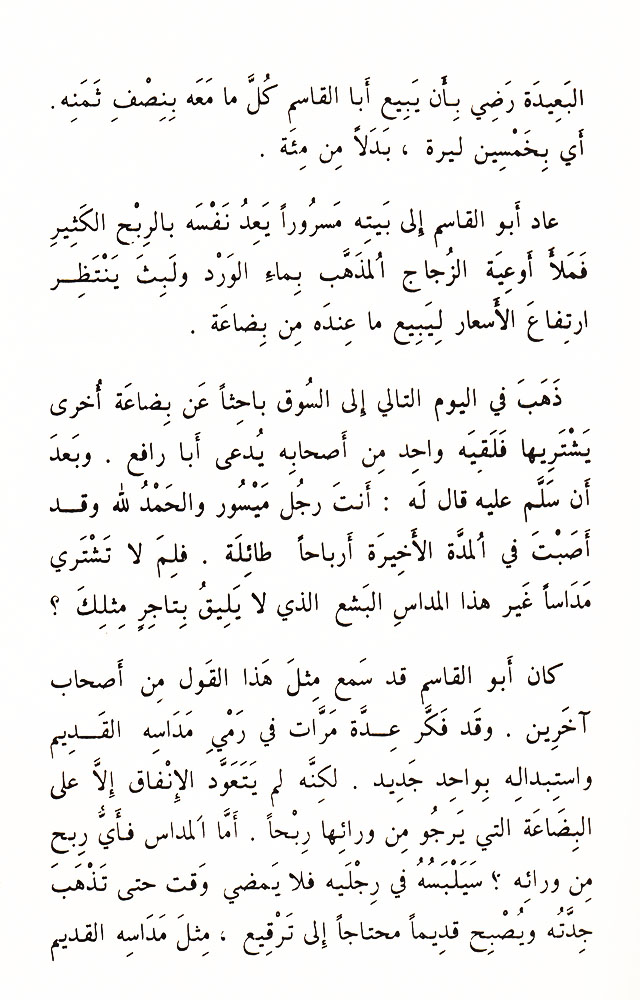 البَعِيدَة رَضِي بِأَن يَبِيع أَبا القاسم كُلَّ ما مَعَه بِنِصْفِ ثَمَنِه .
أَي بِخَمْسِين ليرة ، بَدَلاً مِن مِئَة .
عاد أَبو القاسم إِلى بَيتِه مَسرُوراً يَعِدُ نَفْسَه بالرِبْح الكَثِيرِ
فَمَلأَ أَوعِيَة الزُجاج اُلمذَهَّب بِماءِ الوَرْد ولَبِثَ يَنْتَظِــر
ارتِفاعَ الأَسعار لِيَبِيع ما عِندَه مِن بِضاعَة .
ذَهَبَ في اليوم التالي إِلى السُوق باحِثاً عَن بِضاعَة أُخرى
يَشْتَرِيها فَلَقِيَه واحِد مِن أَصحابِه يُدعى أَبا رافع . وبَعدَ
أَن سَلَّم عليه قال لَه : أَنتَ رجُل مَيْسُور والحَمْدُ لله وقــد
أَصَبْتَ في اُلمدَّة الأَخِيرَة أَرباحاً طائِلَة . فلِمَ لا تَشْتَري
مَدَاساً غَير هذا المداسِ البَشع الذي لا يَلِيقُ بِتاجِرٍ مِثلِكَ ؟
كان أَبو القاسم قد سَمع مِثلَ هَذا القَول مِن أَصحاب
آخَرِين . وقَد فَكَّر عِــدَّة مَرَّات في رَمْيِ مَدَاسِه القَــدِيم
واستِبدالِه بِواحِد جَدِيد . لكِنَّه لم يَتَعَوَّد الإِنْفاق إِلاَّ على
البِضَاعَة التي يَرجُو مِن ورائِها رِبْحاً . أَمَّا اَلمداس فأَيُّ رِبح
مِن ورائِه ؟ سَيَلْبَسُهُ في رِجْلَيه فلا يَمضي وَقت حتى تَذْهَبَ
جِدَّتُه ويُصْبِح قدِيماً محتاجاً إِلى تَرْقِيع ، مِثلَ مَدَاسِه القديم